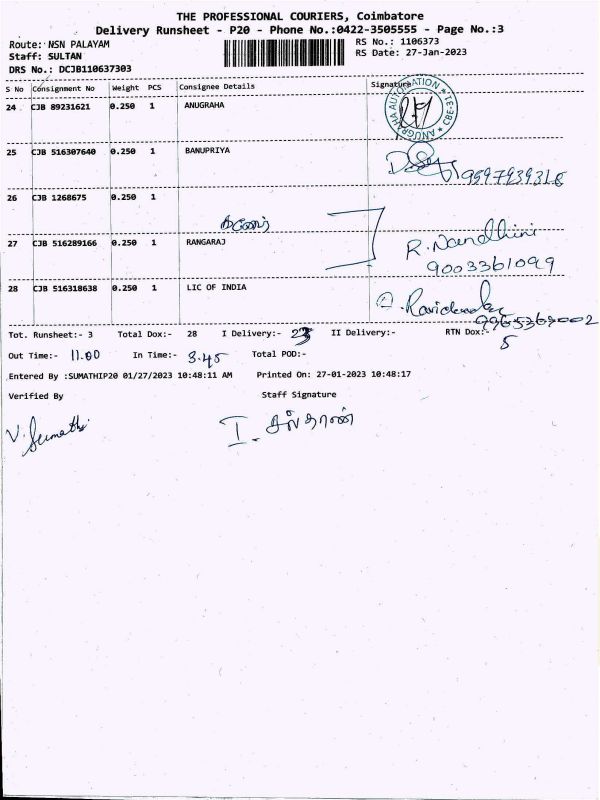 THE PROFESSIONAL COURIERS, Coimbatore
Delivery Runsheet - P20 - Phone No.:0422-3505555 - Page No.:3
Route: NSN PALAYAM RS No.: 1106373
Staff: SULTAN RS Date: 27-Jan-2023
DRS No.: DCJB110637303
S No Consignment No Weight PCS Consignee Details Signature
24 CJB 89231621 0.250 1 ANUGRAHA
ANUGRAHA AUTOMATION
25 CJB 516307640 0.250 1 BANUPRIYA
9597939318
26 CJB 1268675 0.250 1
27 CJB 516289166 0.250 1 RANGARAJ R. Nandhini
9003361099
28 CJB 516318638 0.250 1 LIC OF INDIA
9965369002
Tot. Runsheet:- 3 Total Dox:- 28 I Delivery:- 23 II Delivery:- RTN Dox:- 5
Out Time:- 11.00 In Time:- 3.45 Total POD:-
Entered By :SUMATHIP20 01/27/2023 10:48:11 AM Printed On: 27-01-2023 10:48:17
Verified By Staff Signature
V. Sumathi I. சுல்தான்